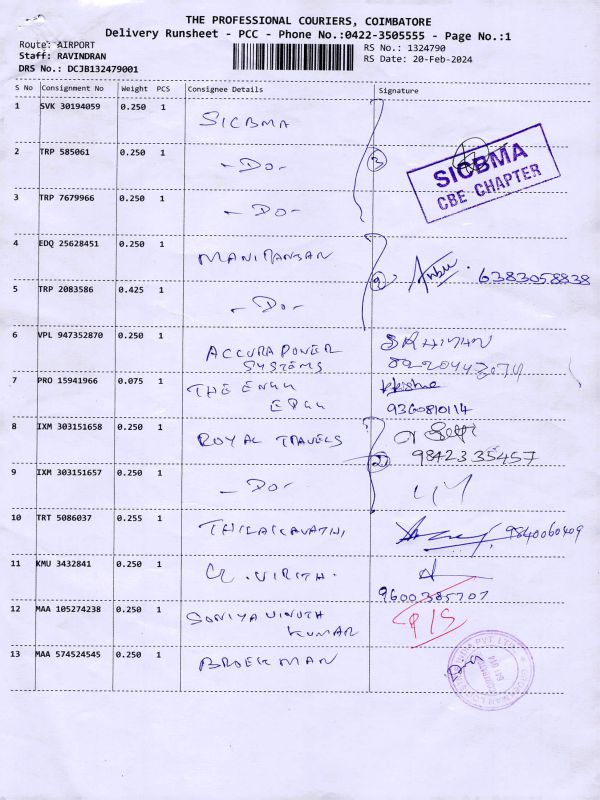 THE PROFESSIONAL COURIERS, COIMBATORE
Delivery Runsheet - PCC - Phone No.:0422-3505555 - Page No.:1
Route: AIRPORT
RS No.: 1324790
Staff: RAVINDRAN
RS Date: 20-Feb-2024
DRS No.: DCJB132479001
S No Consignment No Weight PCS Consignee Details Signature
1 SVK 30194059 0.250 1 SICBMA
2 TRP 585061 0.250 1 -Do- 3
SICBMA
CBE CHAPTER
3 TRP 7679966 0.250 1 -Do-
4 EDQ 25628451 0.250 1 MANIMANSAN
Anbu. 6383058838
5 TRP 2083586 0.425 1 -Do- 2
6 VPL 947352870 0.250 1 ACCURA POWER
SYSTEMS
7 PRO 15941966 0.075 1 THE ENGG
9360810114
8 IXM 303151658 0.250 1 ROYAL TRAVELS
9842335457
9 IXM 303151657 0.250 1 -Do- 2
10 TRT 5086037 0.255 1 THILAKAVATHI 9840060409
11 KMU 3432841 0.250 1
9600385707
12 MAA 105274238 0.250 1 SONIYA VINOTH
KUMAR
13 MAA 574524545 0.250 1 BROEKMAN